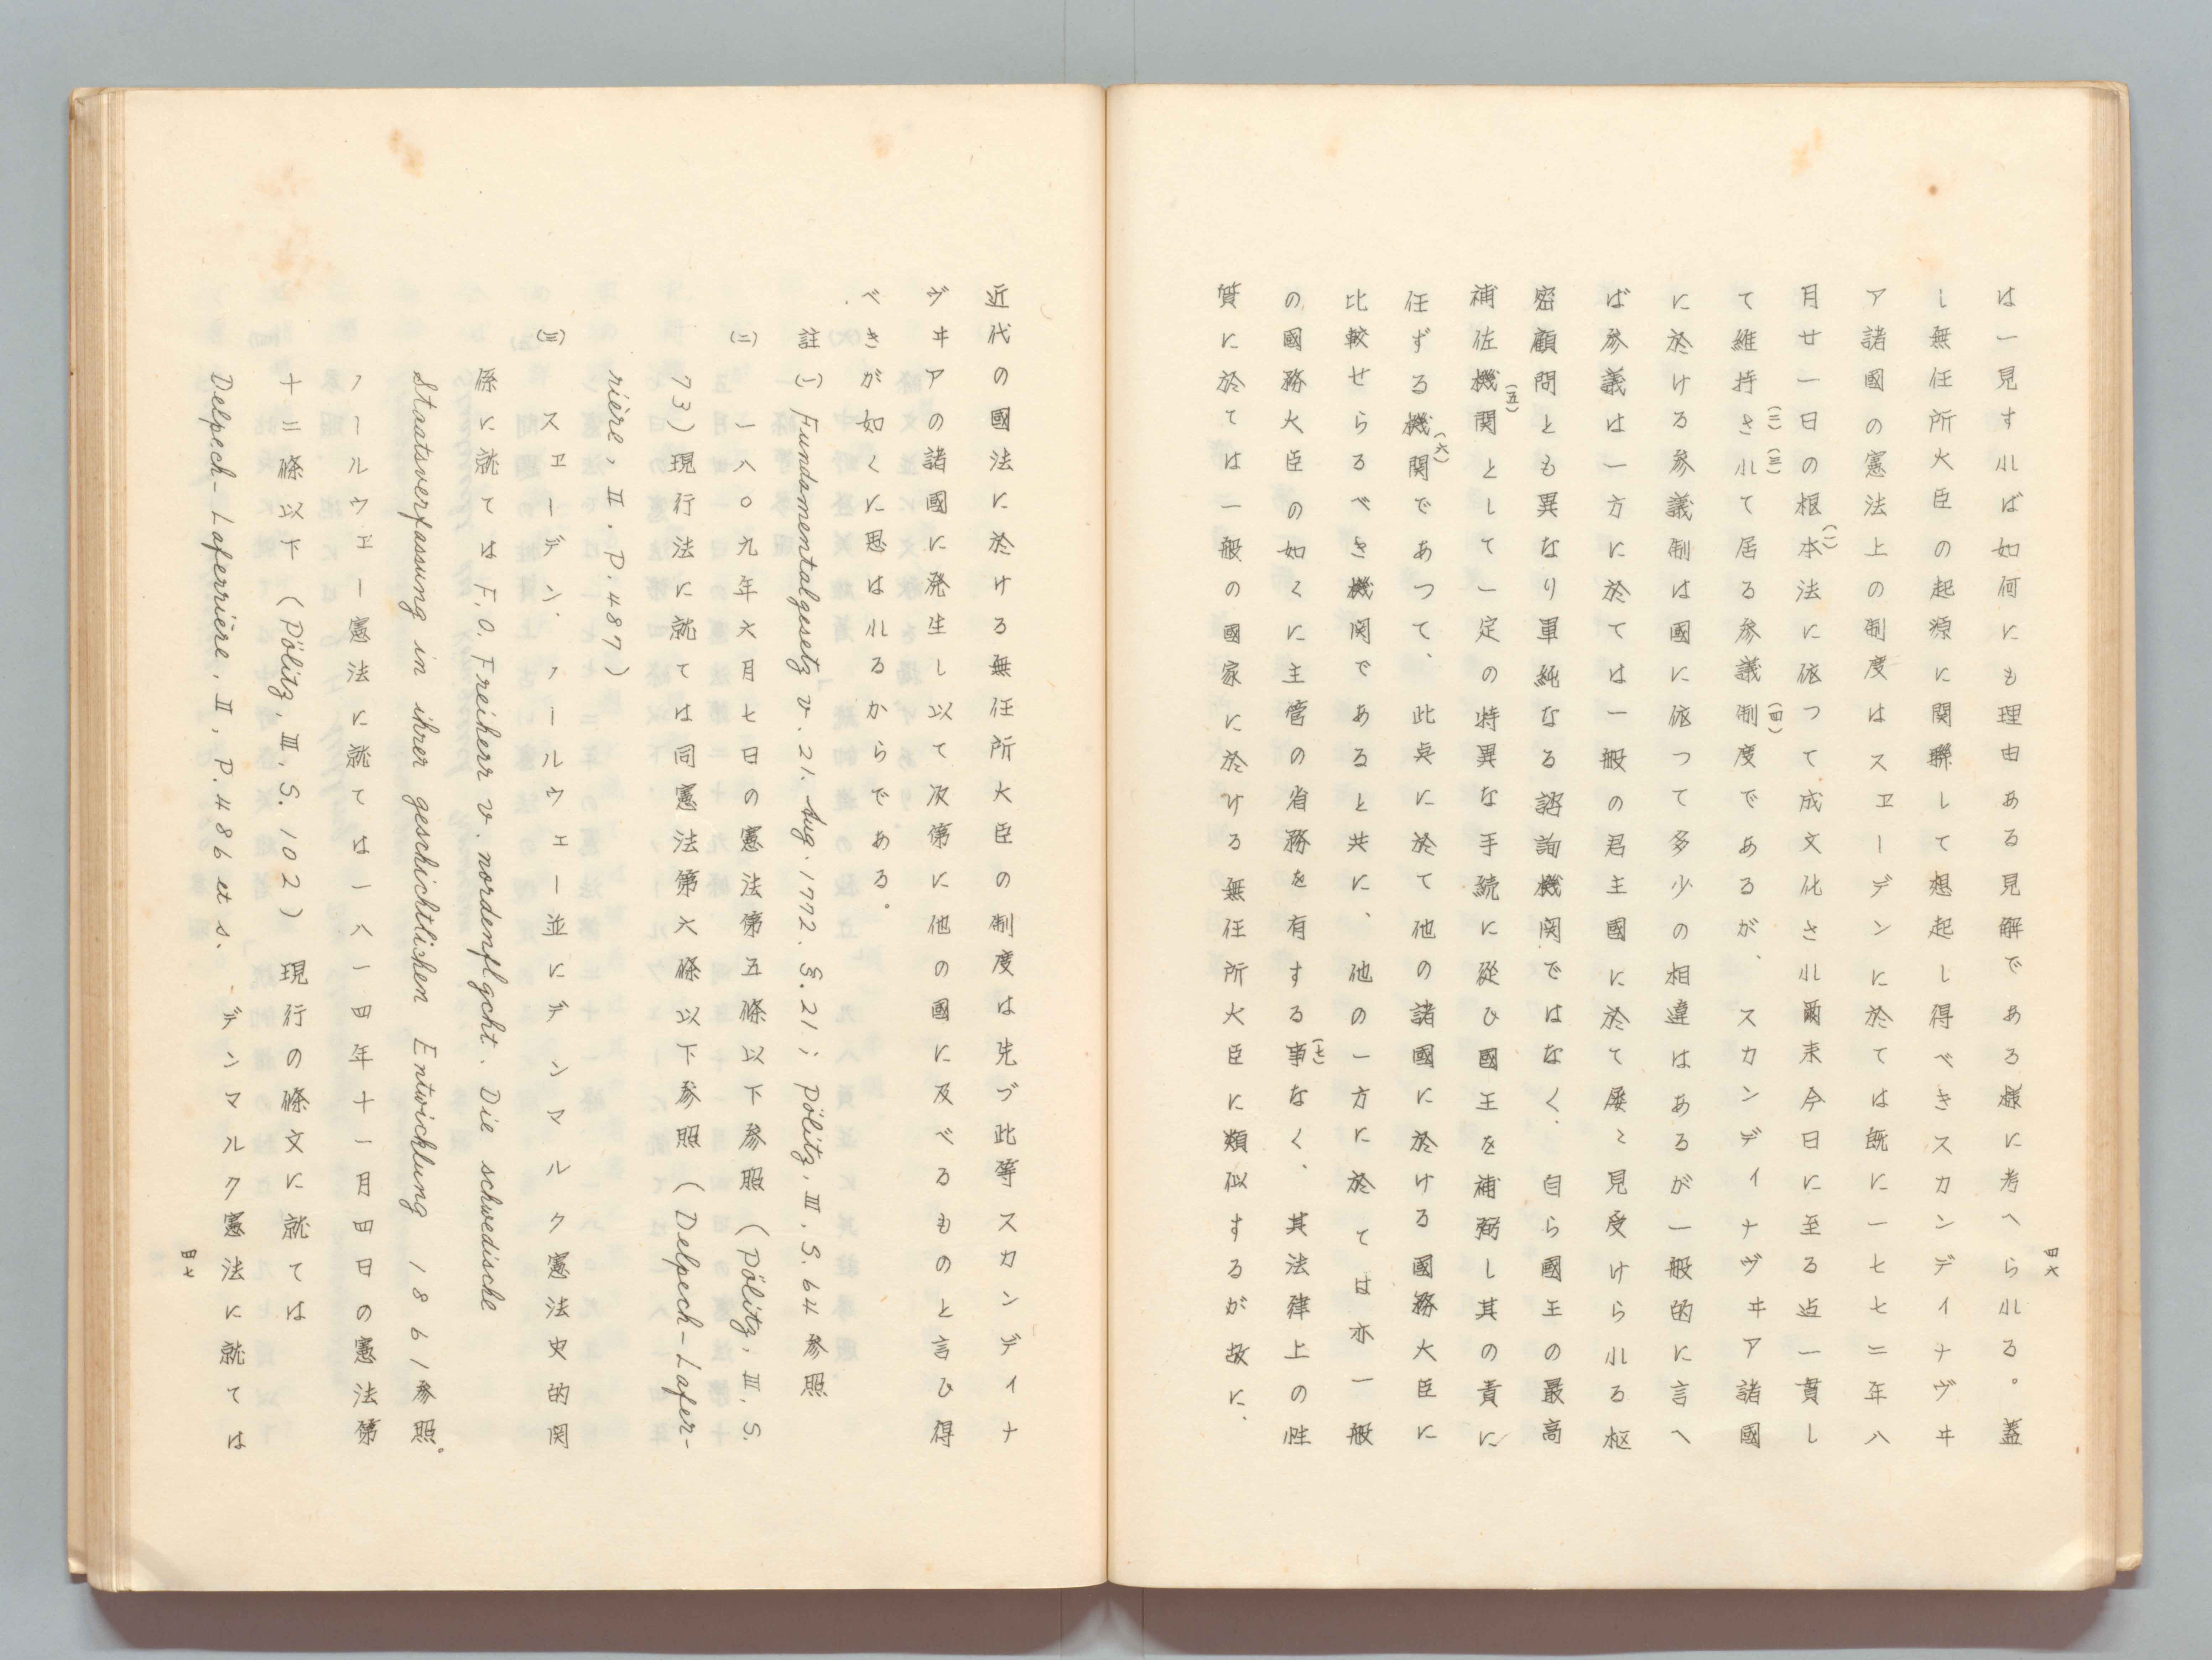 四六
は一見すれば如何にも理由ある見解である様に考へられる。蓋
し無任所大臣の起源に関聯して想起し得べきスカンディナヴヰ
ア諸國の憲法上の制度はスヱーデンに於ては既に一七七二年八
月廿一日の根本法(一)に依つて成文化され爾来今日に至る迠一貫し
て維持(二)され(三)て居る参議制(四)度であるが、スカンディナヴヰア諸國
に於ける参議制は國に依つて多少の相違はあるが一般的に言へ
ば参議は一方に於ては一般の君主國に於て屡〻見受けられる枢
密顧問とも異なり單純なる諮詢機関ではなく、自ら國王の最高
補佐機(五)関として一定の特異な手続に從ひ國王を補弼し其の責に
任ずる機関(六)であつて、此点に於て他の諸國に於ける國務大臣に
比較せらるべき機関であると共に、他の一方に於ては亦一般
の國務大臣の如くに主管の省務を有する事(七)なく、其法律上の性
質に於ては一般の國家に於ける無任所大臣に類似するが故に、
近代の國法に於ける無任所大臣の制度は先づ此等スカンディナ
ヴヰアの諸國に発生し以て次第に他の國に及べるものと言ひ得
べきが如くに思はれるからである。
註 (一) Fundamentalgesetz v. 21. Aug. 1772. §. 21; Pölitz, III, S. 64 参照
(二) 一八〇九年六月七日の憲法第五條以下参照 (Pölitz, III, S.
73) 現行法に就ては同憲法第六條以下参照 (Delpech-Lafer-
rière, II. P. 487)
(三) スヱーデン、ノールウェー並にデンマルク憲法史的関
係に就ては F. O. Freiherr v. nordenflycht, Die schwedische
Staatsverfassung in ihrer geschichtlichen Entwicklung 1861 参照。
ノールウェー憲法に就ては一八一四年十一月四日の憲法第
十二條以下 (Pölitz, III, S. 102) 現行の條文に就ては
Delpech-Laferrière, II, P. 486 et s. デンマルク憲法に就ては
四七